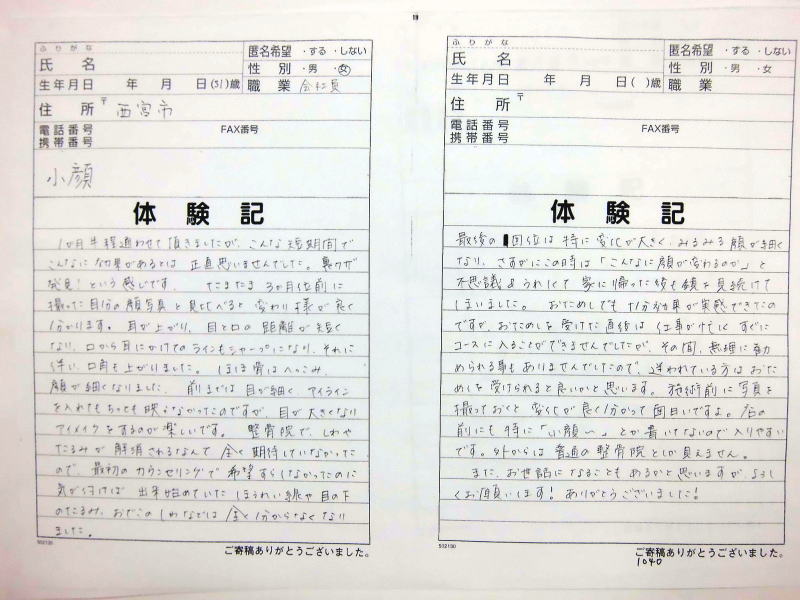 ふりがな
氏名
匿名希望 ・する ・しない
性別 ・男 ・女
生年月日 年 月 日 (51)歳
職業 会社員
住所 〒 西宮市
電話番号 FAX番号
携帯番号
小顔
体験記
1か月半程通わせて頂きましたが、こんな短期間で
こんなに効果があるとは 正直思いませんでした。裏ワザ
発見！という感じです。 たまたま3か月位前に
撮った自分の顔写真と見比べると 変わり様が良く
分かります。耳が上がり、目と口の距離が短く
なり、口から耳にかけてのラインもシャープになり、それに
伴い、口角も上がりました。ほほ骨はへっこみ、
顔が細くなりました。前までは目が細く、アイライン
を入れてもちっとも映えなかったのですが、目が大きくなり
アイメイクをするのが楽しいです。 整骨院で、しわや
たるみが解消されるなんて 全く期待していなかった
ので、最初のカウンセリングで希望すらしなかったのに
気が付けば 出来始めていた ほうれい線や目の下
のたるみ、おでこのしわなどは 全く分からなくなり
ました。
502130
ご寄稿ありがとうございました。
ふりがな
氏名
匿名希望 ・する ・しない
性別 ・男 ・女
生年月日 年 月 日 ( )歳
職業
住所 〒
電話番号 FAX番号
携帯番号
体験記
最後の 回位は特に変化が大きく、みるみる顔が細く
なり、さすがにこの時は「こんなに顔が変わるのか」と
不思議とうれしくて 家に帰った後も鏡を見続けて
しまいました。おためしでも十分効果が実感できたの
ですが、おためしを受けた直後は 仕事が忙しくすぐに
コースに入ることができませんでしたが、その間、無理に勧
められる事もありませんでしたので、迷われている方はおた
めしを受けられると良いかと思います。施術前に写真を
撮っておくと 変化が良く分かって面白いですよ。店の
前にも特に「小顔〜」とか書いてないので入りやすい
です。外からは普通の整骨院としか見えません。
また、お世話になることもあるかと思いますが、よろし
くお願いします！ありがとうございました！
502130
ご寄稿ありがとうございました。
1040